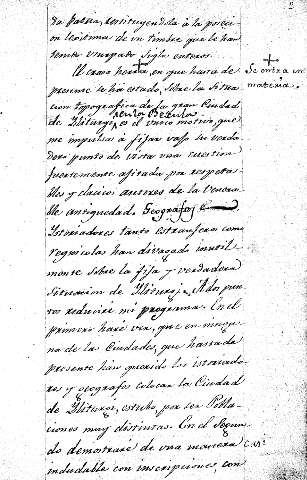 da patria, restituyendola à la posecion
lexitima de un timbre que le han
tenido usurpado siglos enteros.
El craso herror, en que hasta de
presente se ha estado, sobre la Situa
cion topografica de la gran Ciudad
de Iliturgi, en la Betica
es el unico motivo, que
me impulsa à fijar vajo su verda
dero punto de vista una cuestion
fuertemente agitada por respeta
bles y clasicos autores de la venera
ble antiguedad. Geografos é
Istoriadores tanto estranjeros como
regnicolas han divagado inutil
mente sobre la fija y verdadera
Situacion de Iliturgi. A dos pun
tos reduciré mi programa. En el
primero haré ver, que en ningu
na de la Ciudades, que hasta de
presente han querido los istoriado
res y geografos colocar la Ciudad
de Iliturgi, estubo, por ser Pobla
ciones muy distintas. En el Segun
do demostraré de una manera
indudable con inscripciones, con
Se entra en
materia.